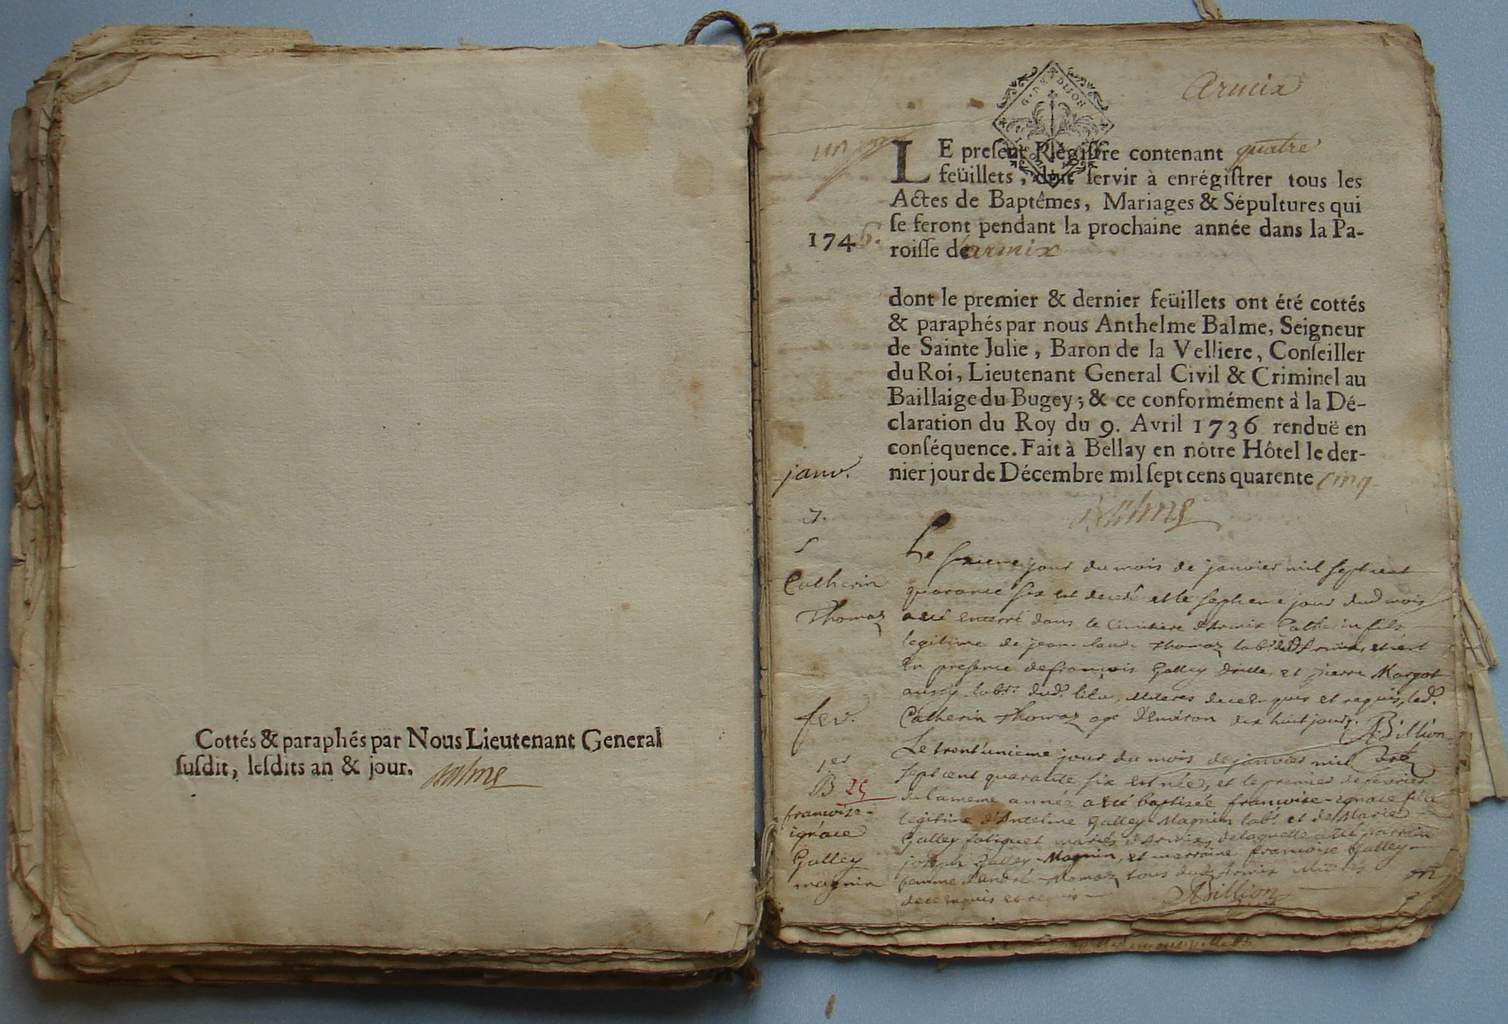 Cottés & paraphés par Nous Lieutenant General
susdit, lesdits an & jour. Balme
G. DE DIJON
Armix
LE present Régistre contenant quatre
feüillets, doit servir à enrégistrer tous les
Actes de Baptêmes, Mariages & Sépultures qui
se feront pendant la prochaine année dans la Pa-
roisse de armix
1746.
dont le premier & dernier feüillets ont été cottés
& paraphés par nous Anthelme Balme, Seigneur
de Sainte Julie, Baron de la Velliere, Conseiller
du Roi, Lieutenant General Civil & Criminel au
Baillaige du Bugey; & ce conformément à la Dé-
claration du Roy du 9. Avril 1736 renduë en
conséquence. Fait à Bellay en nôtre Hôtel le der-
nier jour de Décembre mil sept cens quarente cinq.
Balme
janv.
7.
S
Catherin
Thomaz
Le sixieme jour du mois de janvier mil sept cent
quarante six est decedé et le septieme jour dud mois
a eté enterré dans le cimitiere d'armix Catherin fils
legitime de jean claude Thomaz
en presence de françois Galley et pierre Margot
aussy labr dud. lieu, illiteres de ce enquis et requis, led.
Catherin Thomaz agé d'environ dix huit jours. ABillion
fev.
1er
B 25
francoise-
ignace
Galley
magnin
Le trent'unieme jour du mois de janvier mil
sept cent quarante six est née, et le premier de fevrier
de la meme année a eté baptisée francoise-ignace fille
legitime d'Anteline Galley-Magnin labr et de Marie
Galley mariés d'Armix, de laquelle a eté parrain
joseph Galley-Magnin, et marraine francoise Galley
femme d'andré Momaz tous dud Armix illiterés
de ce enquis et requis ABillion